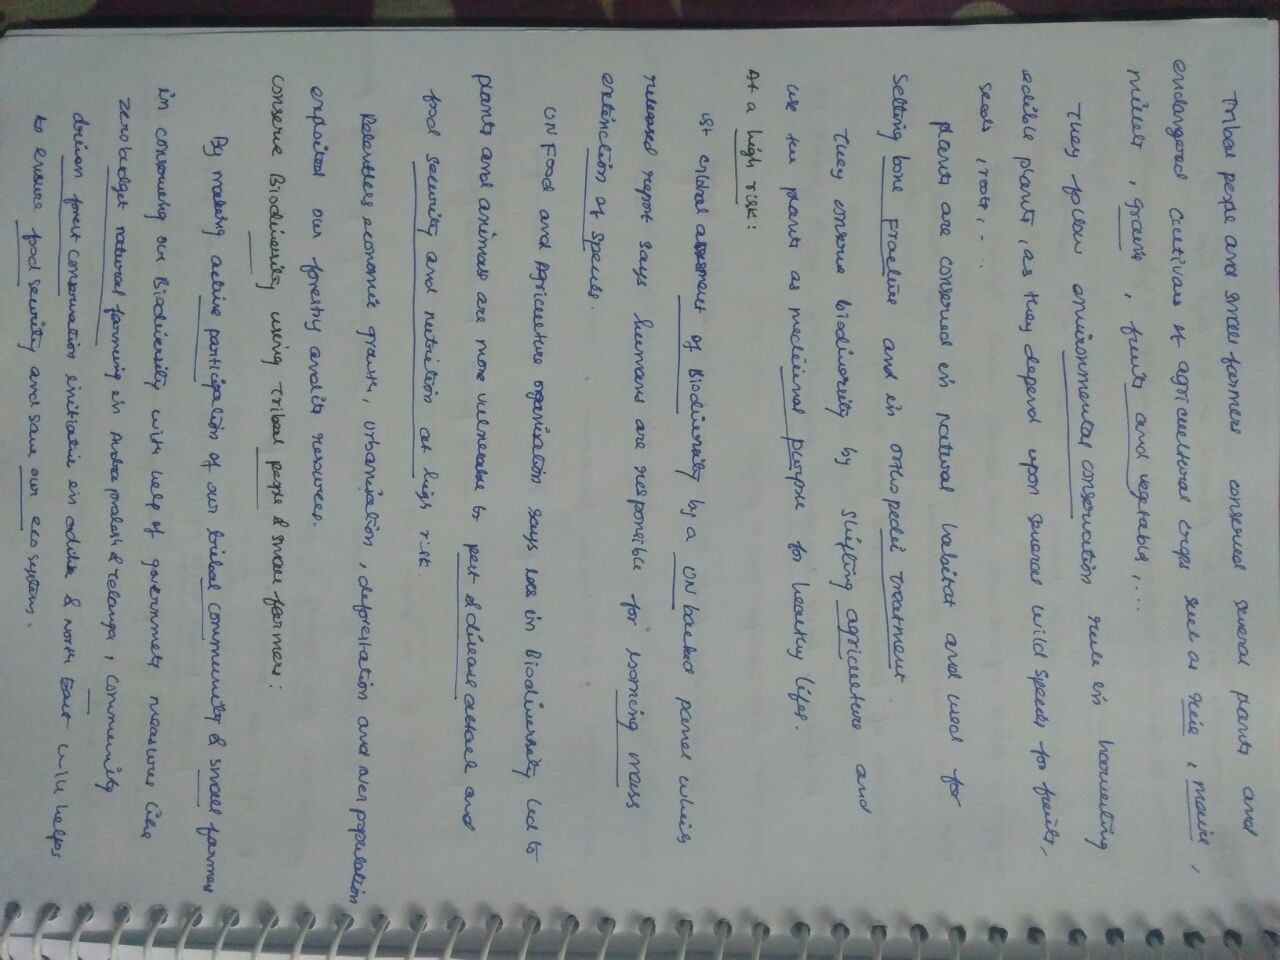 Tribal people and small farmers conserved several plants and
endangered cultivars of agricultural crops such as rice, maize,
millets, grains, fruits and vegetables,....
They follow environmental conservation rule in harvesting
edible plants, as they depend upon several wild speeds for fruits,
seeds, roots, ...
plants are conserved in natural habitat and used for
Setting bone fracture and in orthopedic treatment.
They conserve biodiversity by shifting agriculture and
use the plants as medicinal purpose for healthy lifes.
At a high risk:
1st Global assessment of Biodiversity by a UN backed panel which
released report says humans are responsible for mass
extinction of species.
UN Food and Agriculture organisation says loss in Biodiversity led to
plants and animals are more vulnerable to pest & disease attack and
food security and nutrition at high risk.
Relentless economic growth, urbanisation, deforestation and over population
exploited our forestry and its resources.
conserve Biodiversity using Tribal people & small farmers:
By making active participation of our tribal community & small farmers
in conserving our Biodiversity with help of government measures like
zero budget natural farming in Andra pradesh & Telanga, community
driven forest conservation initiative in odisha & North East will helps
to ensure food security and save our eco system.